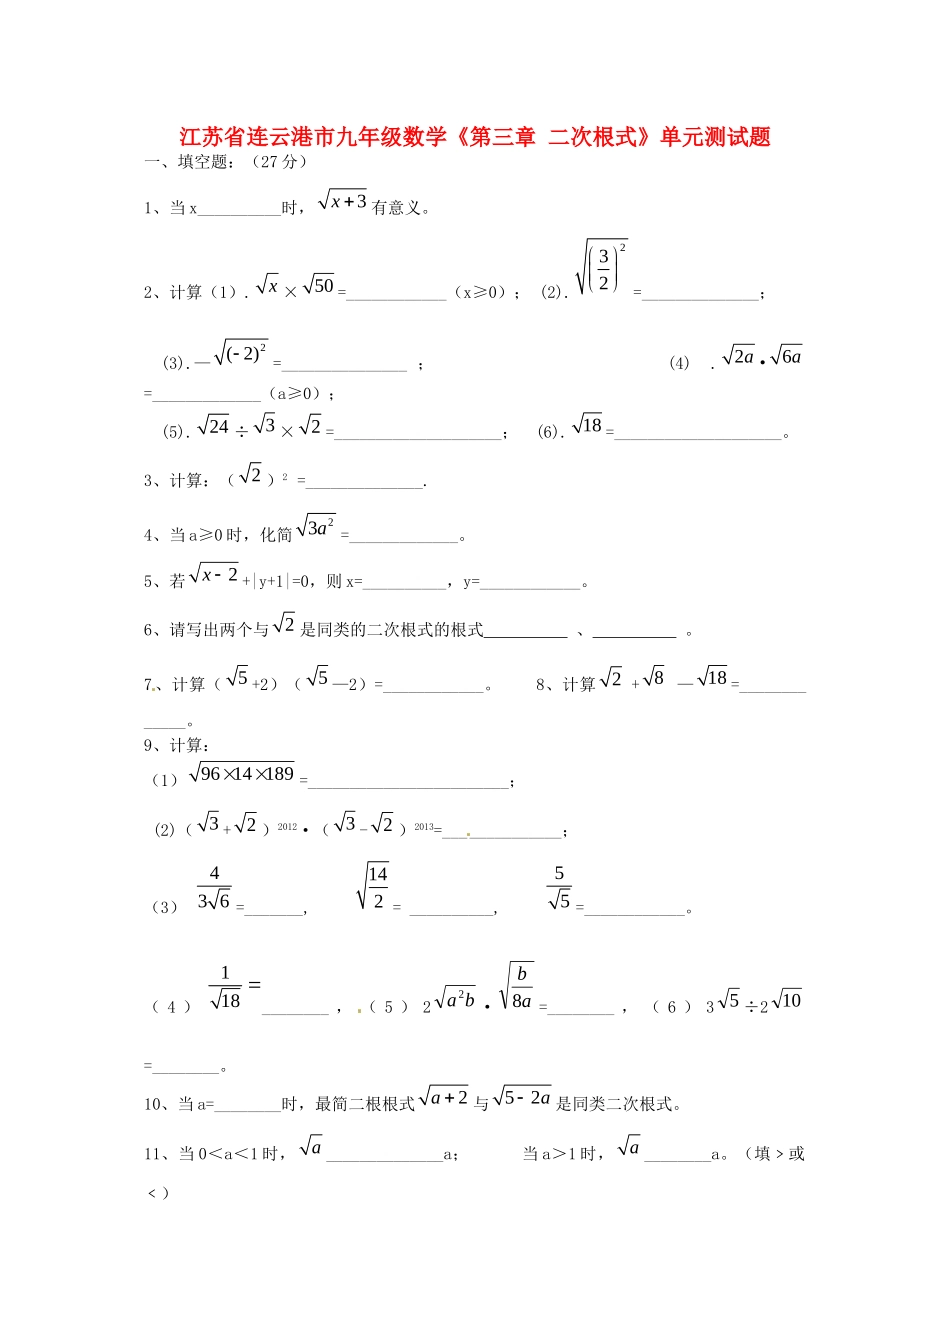 江苏省连云港市九年级数学《第三章 二次根式》单元测试题
一、填空题：（27 分）
1、当 x__________时，√(x+3) 有意义。
2、计算（1）. √x × √50 =____________（x≥0）； (2). √((3/2)²) =______________；
(3).—√((-2)²) =_______________ ； (4) . √2a • √6a
=_____________（a≥0）；
(5). √24 ÷ √3 × √2 =____________________； (6). √18 =____________________。
3、计算：（√2）² =______________.
4、当 a≥0 时，化简 √(3a²) =_____________。
5、若 √(x-2) +|y+1|=0，则 x=__________，y=____________。
6、请写出两个与 √2 是同类的二次根式的根式__________ 、__________ 。
7、计算（√5 +2）（√5 —2）=____________。 8、计算 √2 + √8 — √18 =________
_____。
9、计算：
（1）√(96×14×189) =________________________；
(2)（√3 + √2）²⁰¹² •（√3 - √2）²⁰¹³=______________；
（3） 4/(3√6) =_______， √(14/2) = __________， 5/√5 =____________。
（ 4 ） 1/√18 = ________ ，（ 5 ） 2√(a²b) • √(b/8a) =________ ， （ 6 ） 3√5 ÷2√10
=________。
10、当 a=________时，最简二根根式 √(a+2) 与 √(5-2a) 是同类二次根式。
11、当 0＜a＜1 时，√a ______________a； 当 a＞1 时，√a ________a。（填﹥或
﹤）